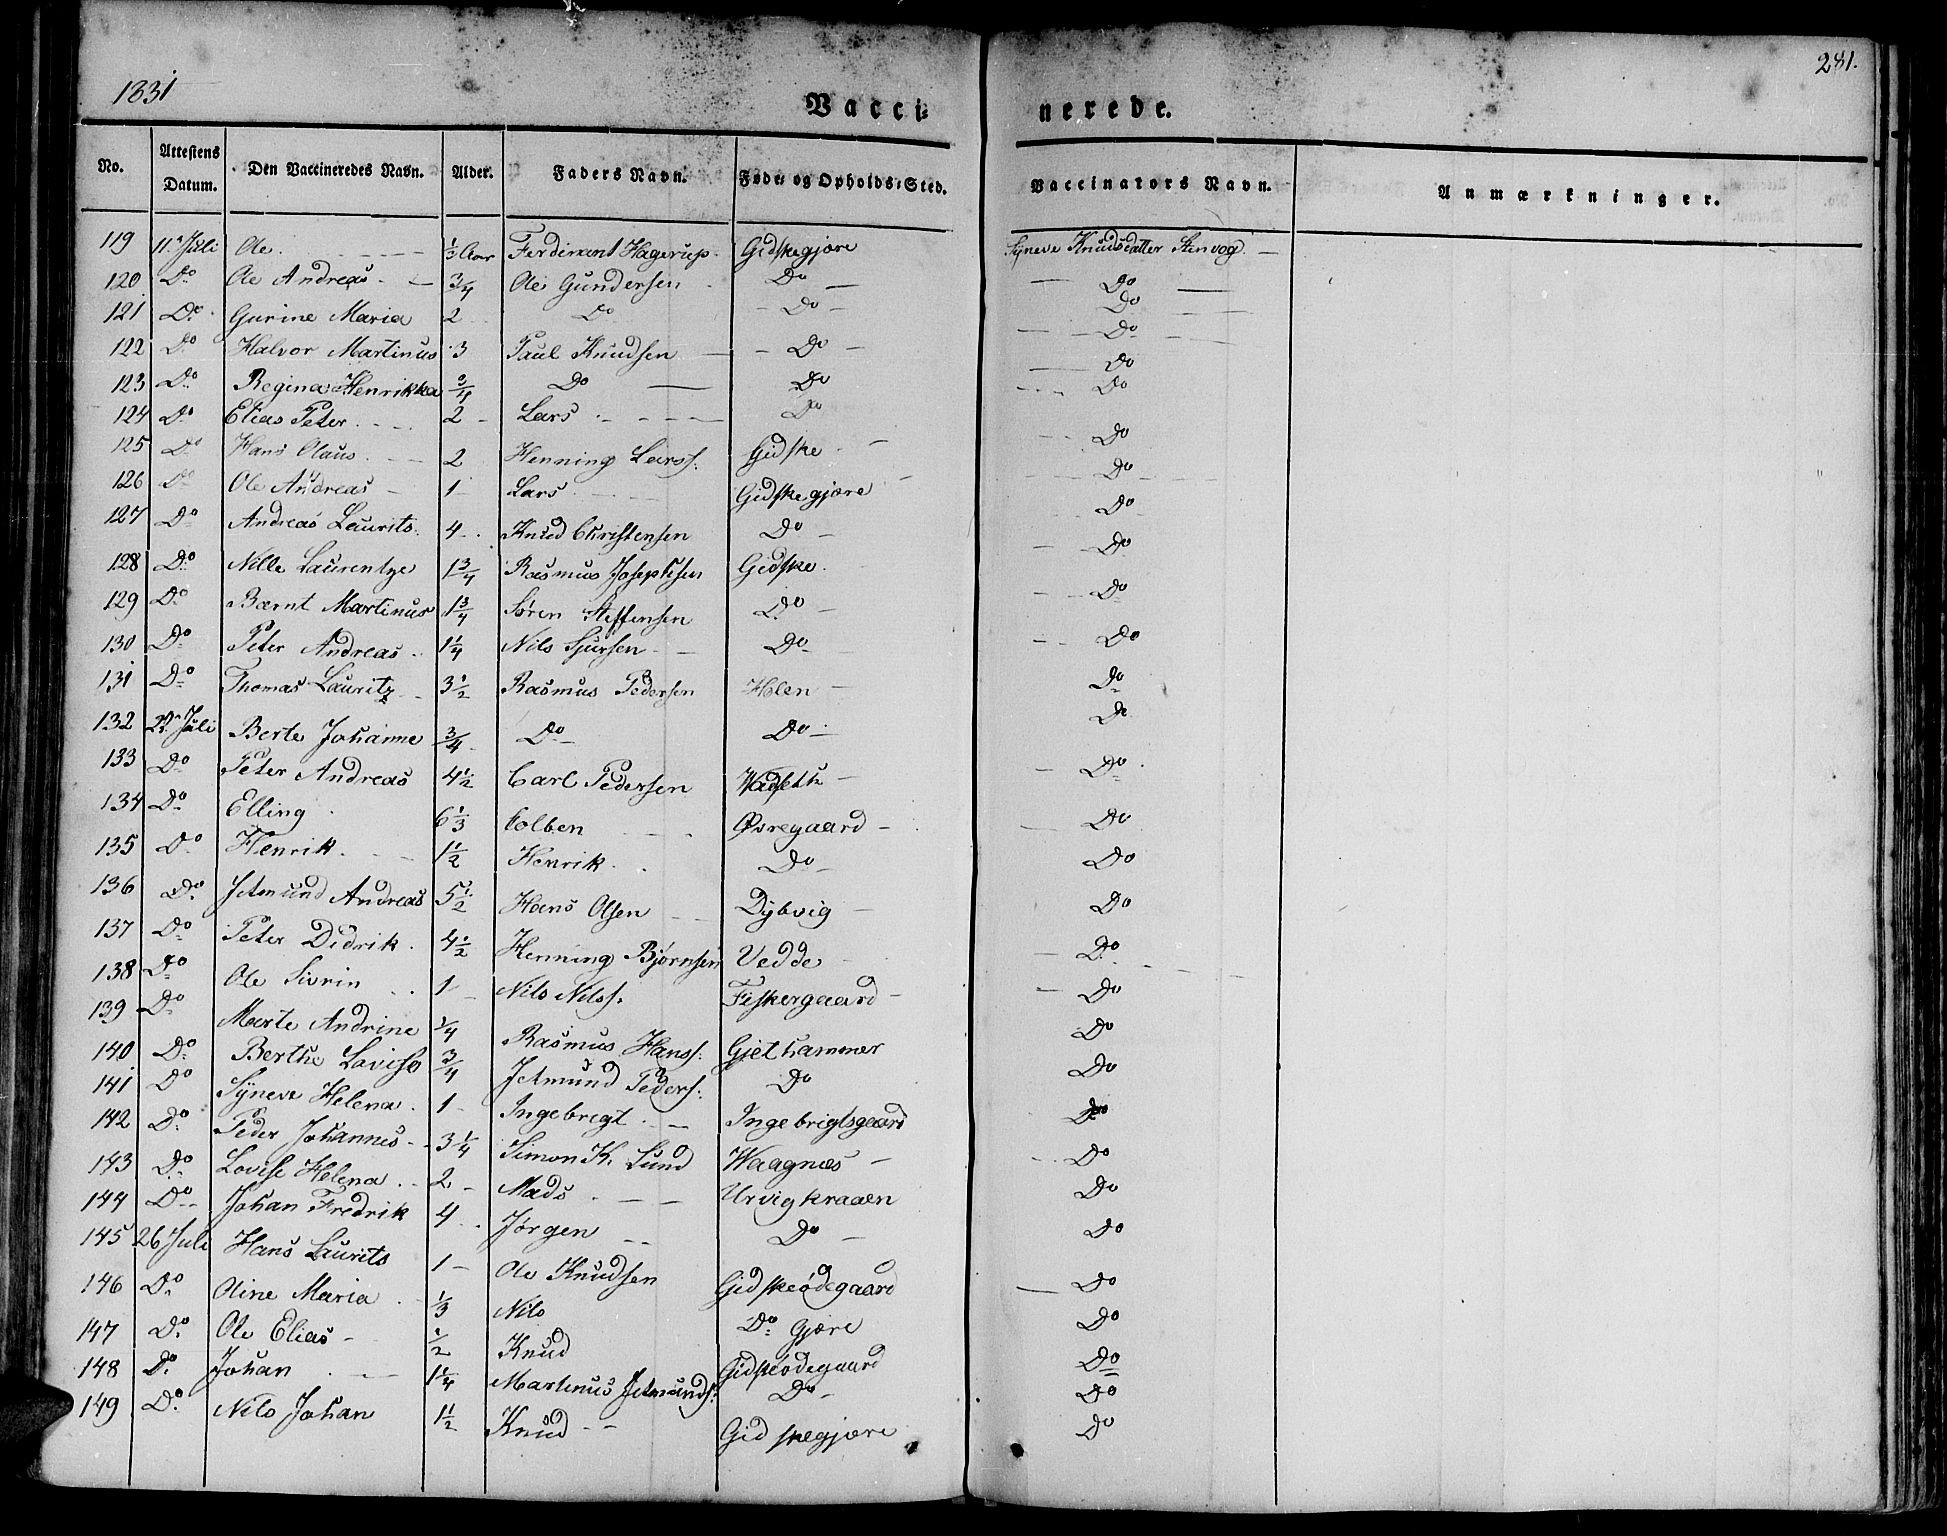 1831
281.
Vacci- nerede.
No. Attestens Datum. Den Vaccineredes Navn. Alder. Faders Navn. Føde- og Opholds-Sted. Vaccinators Navn. Anmærkninger.
119 11 Juli Ole ½ Aar Ferdinant Hagerup Gidskegjøre Syneve Knudsdatter Stenvog
120 Do Ole Andreas 3/4 Ole Gundersen Do Do
121 Do Gurine Maria 2 Do Do Do
122 Do Halvor Martinus 3 Paul Knudsen Do Do
123 Do Regina Henrikka 3/4 Do Do Do
124 Do Elias Peter 2 Lars Do Do
125 Do Hans Olaus 2 Henning Larss. Gidske Do
126 Do Ole Andreas 1 Lars Gidskegjøre Do
127 Do Andreas Laurits 4 Knud Christensen Do Do
128 Do Nille Laurentze 1 3/4 Rasmus Josephsen Gidske Do
129 Do Bernt Martinus 1 3/4 Søren Steffensen Do Do
130 Do Peter Andreas 1 1/4 Nils Sjursen Do Do
131 Do Thomas Lauritz 3 1/2 Rasmus Pedersen Helen Do
132 22 Juli Berte Johanne 3/4 Do Do Do
133 Do Peter Andreas 4 1/2 Carl Pedersen Wadseth Do
134 Do Elling 6 1/3 Colben Øvregaard Do
135 Do Henrik 1 1/2 Henrik Do Do
136 Do Jetmund Andreas 5 1/2 Hans Olsen Dybvig Do
137 Do Peter Didrik 4 1/2 Henning Bjørnsen Vedde Do
138 Do Ole Sivrin 1 Nils Nilss. Fiskergaard Do
139 Do Marte Andrine 1/4 Rasmus Hanss. Gjethammer Do
140 Do Berthe Lovise 3/4 Jetmund Peders. Do Do
141 Do Syneve Helena 1 Ingebregt Ingebrigtsgaard Do
142 Do Peder Johannes 3 1/4 Simon K. Lund Waagnæs Do
143 Do Lovise Helena 2 Mads Urvigkraaen Do
144 Do Johan Fredrik 4 Jørgen Do Do
145 26 Juli Hans Laurits 1 Ole Knudsen Gidskeødegaard Do
146 Do Oline Maria 1/3 Nils Do Gjøre Do
147 Do Ole Elias 1/2 Knud Gidskeødegaard Do
148 Do Johan 1 1/4 Martinus Jetmunds. Do Do
149 Do Nils Johan 1 1/2 Knud Gidskegjøre Do